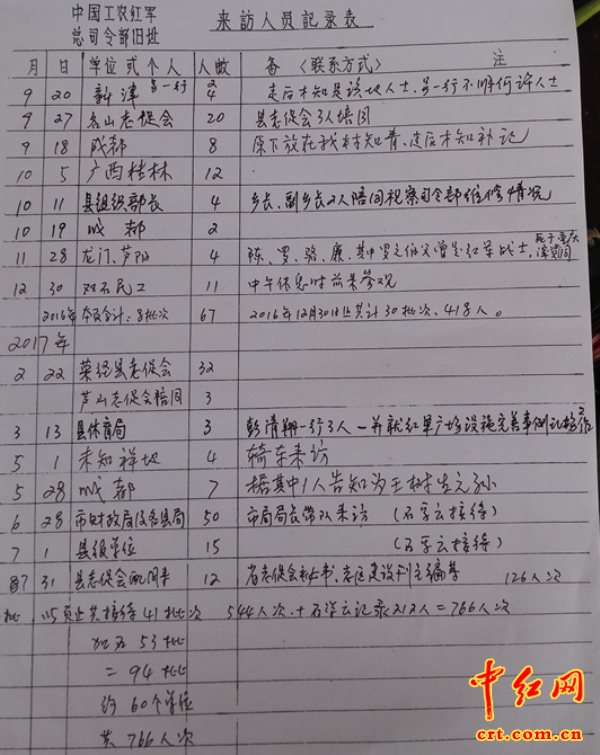 中国工农红军
总司令部旧址
来訪人员記录表
月 日 单位或个人 人数 备(联系方式) 注
9 20 新津 另一行 2 4 走后才知是该地人士,另一行不明何许人士
9 27 名山老促会 20 县老促会3人陪同
9 18 成都 8 原下放在我村知青、走后才知补记
10 5 广西桂林 12
10 11 县组织部长 4 乡长、副乡长2人陪同视察司令部维修情况
10 19 成都 2
11 28 龙门、芦阳 4 陈、罗、骆、廉、其中罗之伯父曾是红军战士,
12 30 双石民工 11 中午休息时前来参观
2016年本页合计:8批次 67 2016年12月30日止共计30批次、418人。
2017年
2 22 荥经县老促会 32
芦山老促会陪同 3
3 13 县体育局 3 彭清翔一行3人一并就红军广场设施完善事
5 1 未知祥地 4 骑车来访
5 28 成都 7 据其中1人告知为王树生之孙
6 28 市财政局及各县局 50 市局局长带队来访 (石孚云接待)
7 1 县级单位 15 (石孚云接待)
7 31 县老促会配同来 12 省老促会秘书、老区建设刊主编等 126人次
本页止共接待41批次 544人次、+石孚云记录212人=766人次
加石53批
=94批
约60个单位
共766人次
中红网
crt.com.cn